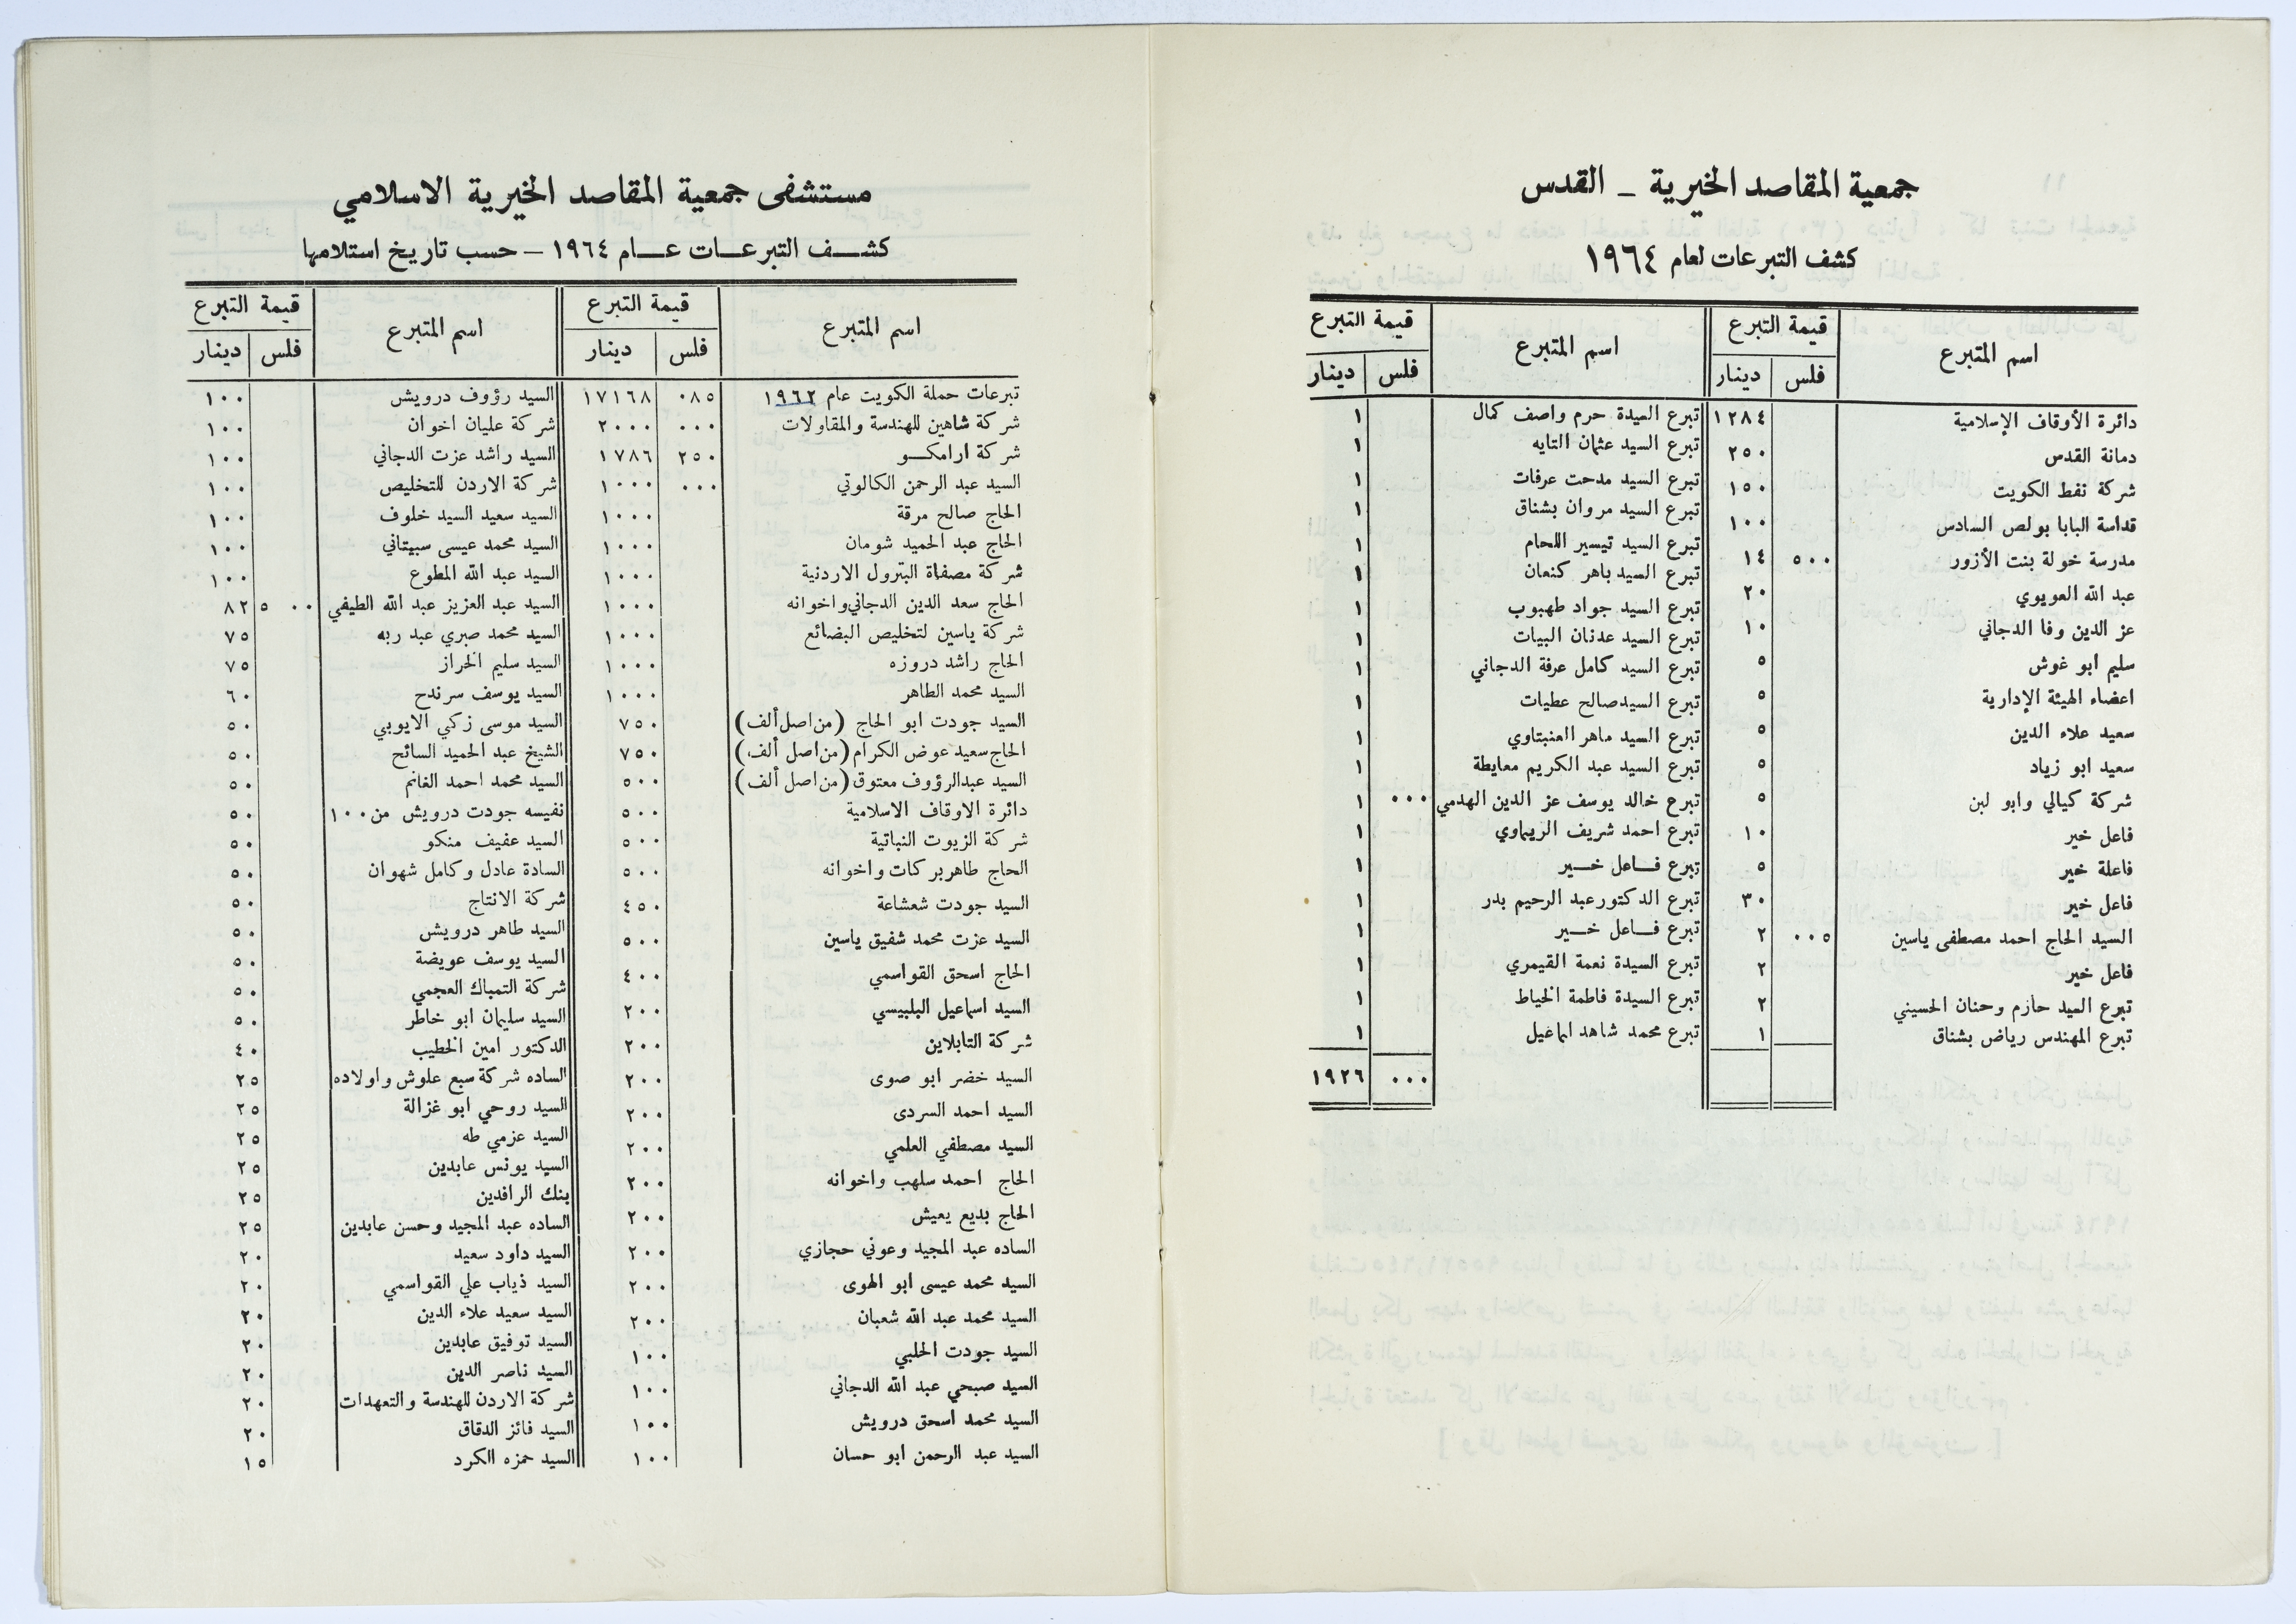 جمعية المقاصد الخيرية - القدس
كشف التبرعات لعام ١٩٦٤
اسم المتبرع قيمة التبرع اسم المتبرع قيمة التبرع
فلس دينار فلس دينار
دائرة الأوقاف الإسلامية ١٢٨٤ تبرع السيدة حرم واصف كمال ١
دمانة القدس ٢٥٠ تبرع السيد عثمان التايه ١
شركة نفط الكويت ١٥٠ تبرع السيد مدحت عرفات ١
قداسة البابا بولص السادس ١٠٠ تبرع السيد مروان بشناق ١
مدرسة خولة بنت الأزور ٥٠٠ ١٤ تبرع السيد تيسير اللحام ١
عبد الله العويوي ٢٠ تبرع السيد باهر كنعان ١
عز الدين وفا الدجاني ١٠ تبرع السيد جواد طهبوب ١
سليم ابو غوش ٥ تبرع السيد عدنان البيات ١
اعضاء الهيئة الإدارية ٥ تبرع السيد كامل عرفة الدجاني ١
سعيد علاء الدين ٥ تبرع السيد صالح عطيات ١
سعيد ابو زياد ٥ تبرع السيد ماهر العنبتاوي ١
شركة كيالي وابو لبن ٥ تبرع السيد عبد الكريم معايطة ١
فاعل خير ١٠ تبرع خالد يوسف عز الدين الهدمي ٠٠٠ ١
فاعلة خير ٥ تبرع احمد شريف الريماوي ١
فاعل خير ٣٠ تبرع فاعل خير ١
السيد الحاج احمد مصطفى ياسين ٠٠٥ ٢ تبرع الدكتور عبد الرحيم بدر ١
فاعل خير ٢ تبرع فاعل خير ١
تبرع السيد حازم وحنان الحسيني ٢ تبرع السيدة نعمة القيمري ١
تبرع المهندس رياض بشناق ١ تبرع السيدة فاطمة الخياط ١
تبرع محمد شاهد اسماعيل ١
٠٠٠ ١٩٢٦
مستشفى جمعية المقاصد الخيرية الاسلامي
كشف التبرعات عام ١٩٦٤ - حسب تاريخ استلامها
اسم المتبرع قيمة التبرع اسم المتبرع قيمة التبرع
فلس دينار فلس دينار
تبرعات حملة الكويت عام ١٩٦٢ ٠٨٥ ١٧١٦٨ السيد رؤوف درويش ١٠٠
شركة شاهين للهندسة والمقاولات ٠٠٠ ٢٠٠٠ شركة عليان اخوان ١٠٠
شركة ارامكو ٢٥٠ ١٧٨٦ السيد راشد عزت الدجاني ١٠٠
السيد عبد الرحمن الكالوتي ٠٠٠ ١٠٠٠ شركة الاردن للتخليص ١٠٠
الحاج صالح مرقة ١٠٠٠ السيد سعيد السيد خلوف ١٠٠
الحاج عبد الحميد شومان ١٠٠٠ السيد محمد عيسى سبيتاني ١٠٠
شركة مصفاة البترول الاردنية ١٠٠٠ السيد عبد الله المطوع ١٠٠
الحاج سعد الدين الدجاني واخوانه ١٠٠٠ السيد عبد العزيز عبد الله الطيفي ٥٠٠ ٨٢
شركة ياسين لتخليص البضائع ١٠٠٠ السيد محمد صبري عبد ربه ٧٥
الحاج راشد دروزه ١٠٠٠ السيد سليم الخراز ٧٥
السيد محمد الطاهر ١٠٠٠ السيد يوسف سرندح ٦٠
السيد جودت ابو الحاج (من اصل ألف) ٧٥٠ السيد موسى زكي الايوبي ٥٠
الحاج سعيد عوض الكرام (من اصل ألف) ٧٥٠ الشيخ عبد الحميد السائح ٥٠
السيد عبد الرؤوف معتوق (من اصل ألف) ٥٠٠ السيد محمد احمد الغانم ٥٠
دائرة الاوقاف الاسلامية ٥٠٠ نفيسه جودت درويش من ١٠٠ ٥٠
شركة الزيوت النباتية ٥٠٠ السيد عفيف منكو ٥٠
الحاج طاهر بركات واخوانه ٥٠٠ السادة عادل وكامل شهوان ٥٠
السيد جودت شعشاعة ٤٥٠ شركة الانتاج ٥٠
السيد عزت محمد شفيق ياسين ٥٠٠ السيد طاهر درويش ٥٠
الحاج اسحق القواسمي ٤٠٠ السيد يوسف عويضة ٥٠
السيد اسماعيل البلبيسي ٢٠٠ شركة التمباك العجمي ٥٠
شركة التابلاين ٢٠٠ السيد سليمان ابو خاطر ٥٠
السيد خضر ابو صوى ٢٠٠ الدكتور امين الخطيب ٤٠
السيد احمد السردى ٢٠٠ الساده شركة سبع علوش واولاده ٢٥
السيد مصطفي العلمي ٢٠٠ السيد روحي ابو غزالة ٢٥
الحاج احمد سلهب واخوانه ٢٠٠ السيد عزمي طه ٢٥
الحاج بديع يعيش ٢٠٠ السيد يونس عابدين ٢٥
الساده عبد المجيد وعوني حجازي ٢٠٠ بنك الرافدين ٢٥
السيد محمد عيسى ابو الهوى ٢٠٠ الساده عبد المجيد وحسن عابدين ٢٥
السيد محمد عبد الله شعبان ٢٠٠ السيد داود سعيد ٢٠
السيد جودت الحلبي ١٠٠ السيد ذياب علي القواسمي ٢٠
السيد صبحي عبد الله الدجاني ١٠٠ السيد سعيد علاء الدين ٢٠
السيد محمد اسحق درويش ١٠٠ السيد توفيق عابدين ٢٠
السيد عبد الرحمن ابو حسان ١٠٠ السيد ناصر الدين ٢٠
شركة الاردن للهندسة والتعهدات ٢٠
السيد فائز الدقاق ٢٠
السيد حمزه الكرد ١٥